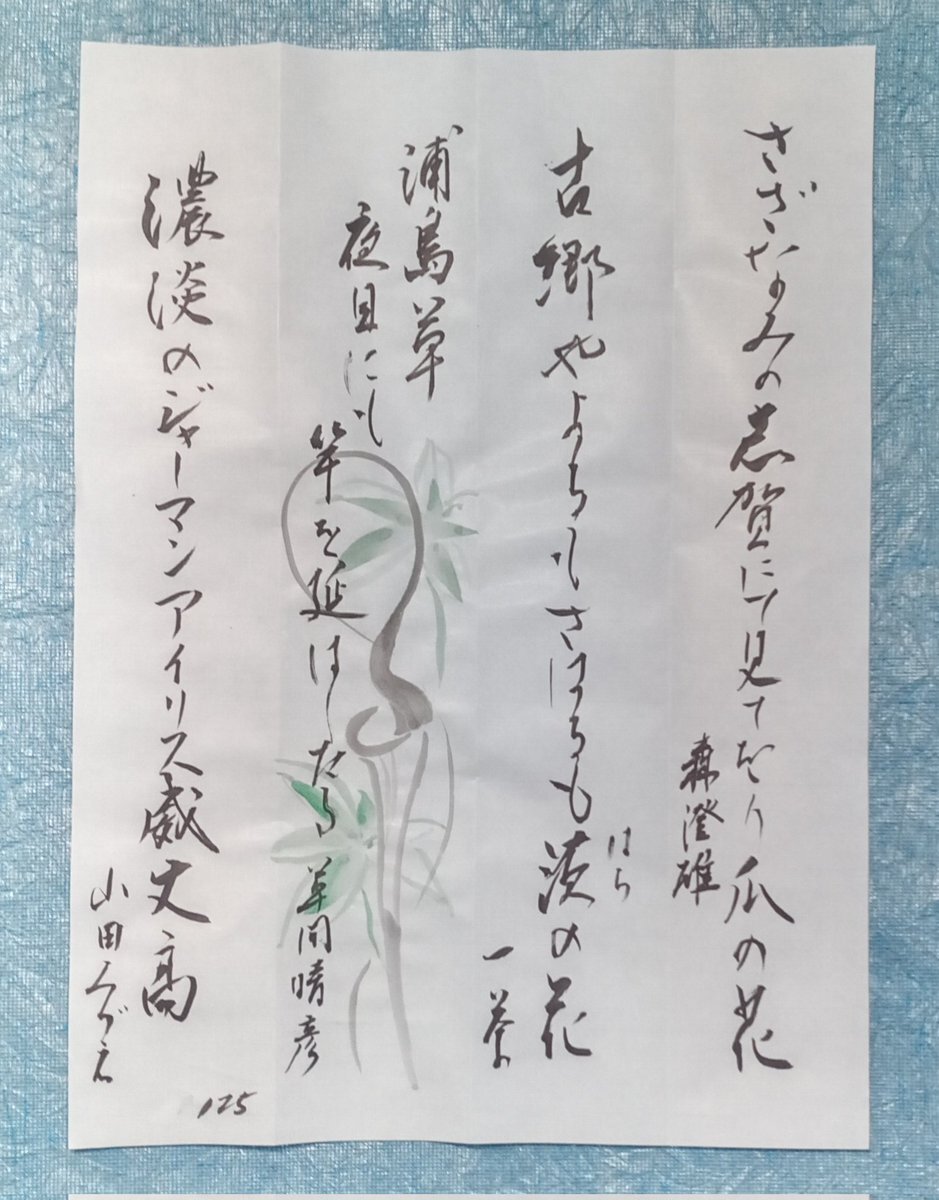 さざなみの志賀にて見てをり瓜の花
森澄雄
古郷やよるもさはるも茨の花
はら
一茶
浦島草
夜目にも
竿を延ばしたる
草間晴彦
濃淡のジャーマンアイリス威丈高
山田みづえ
125